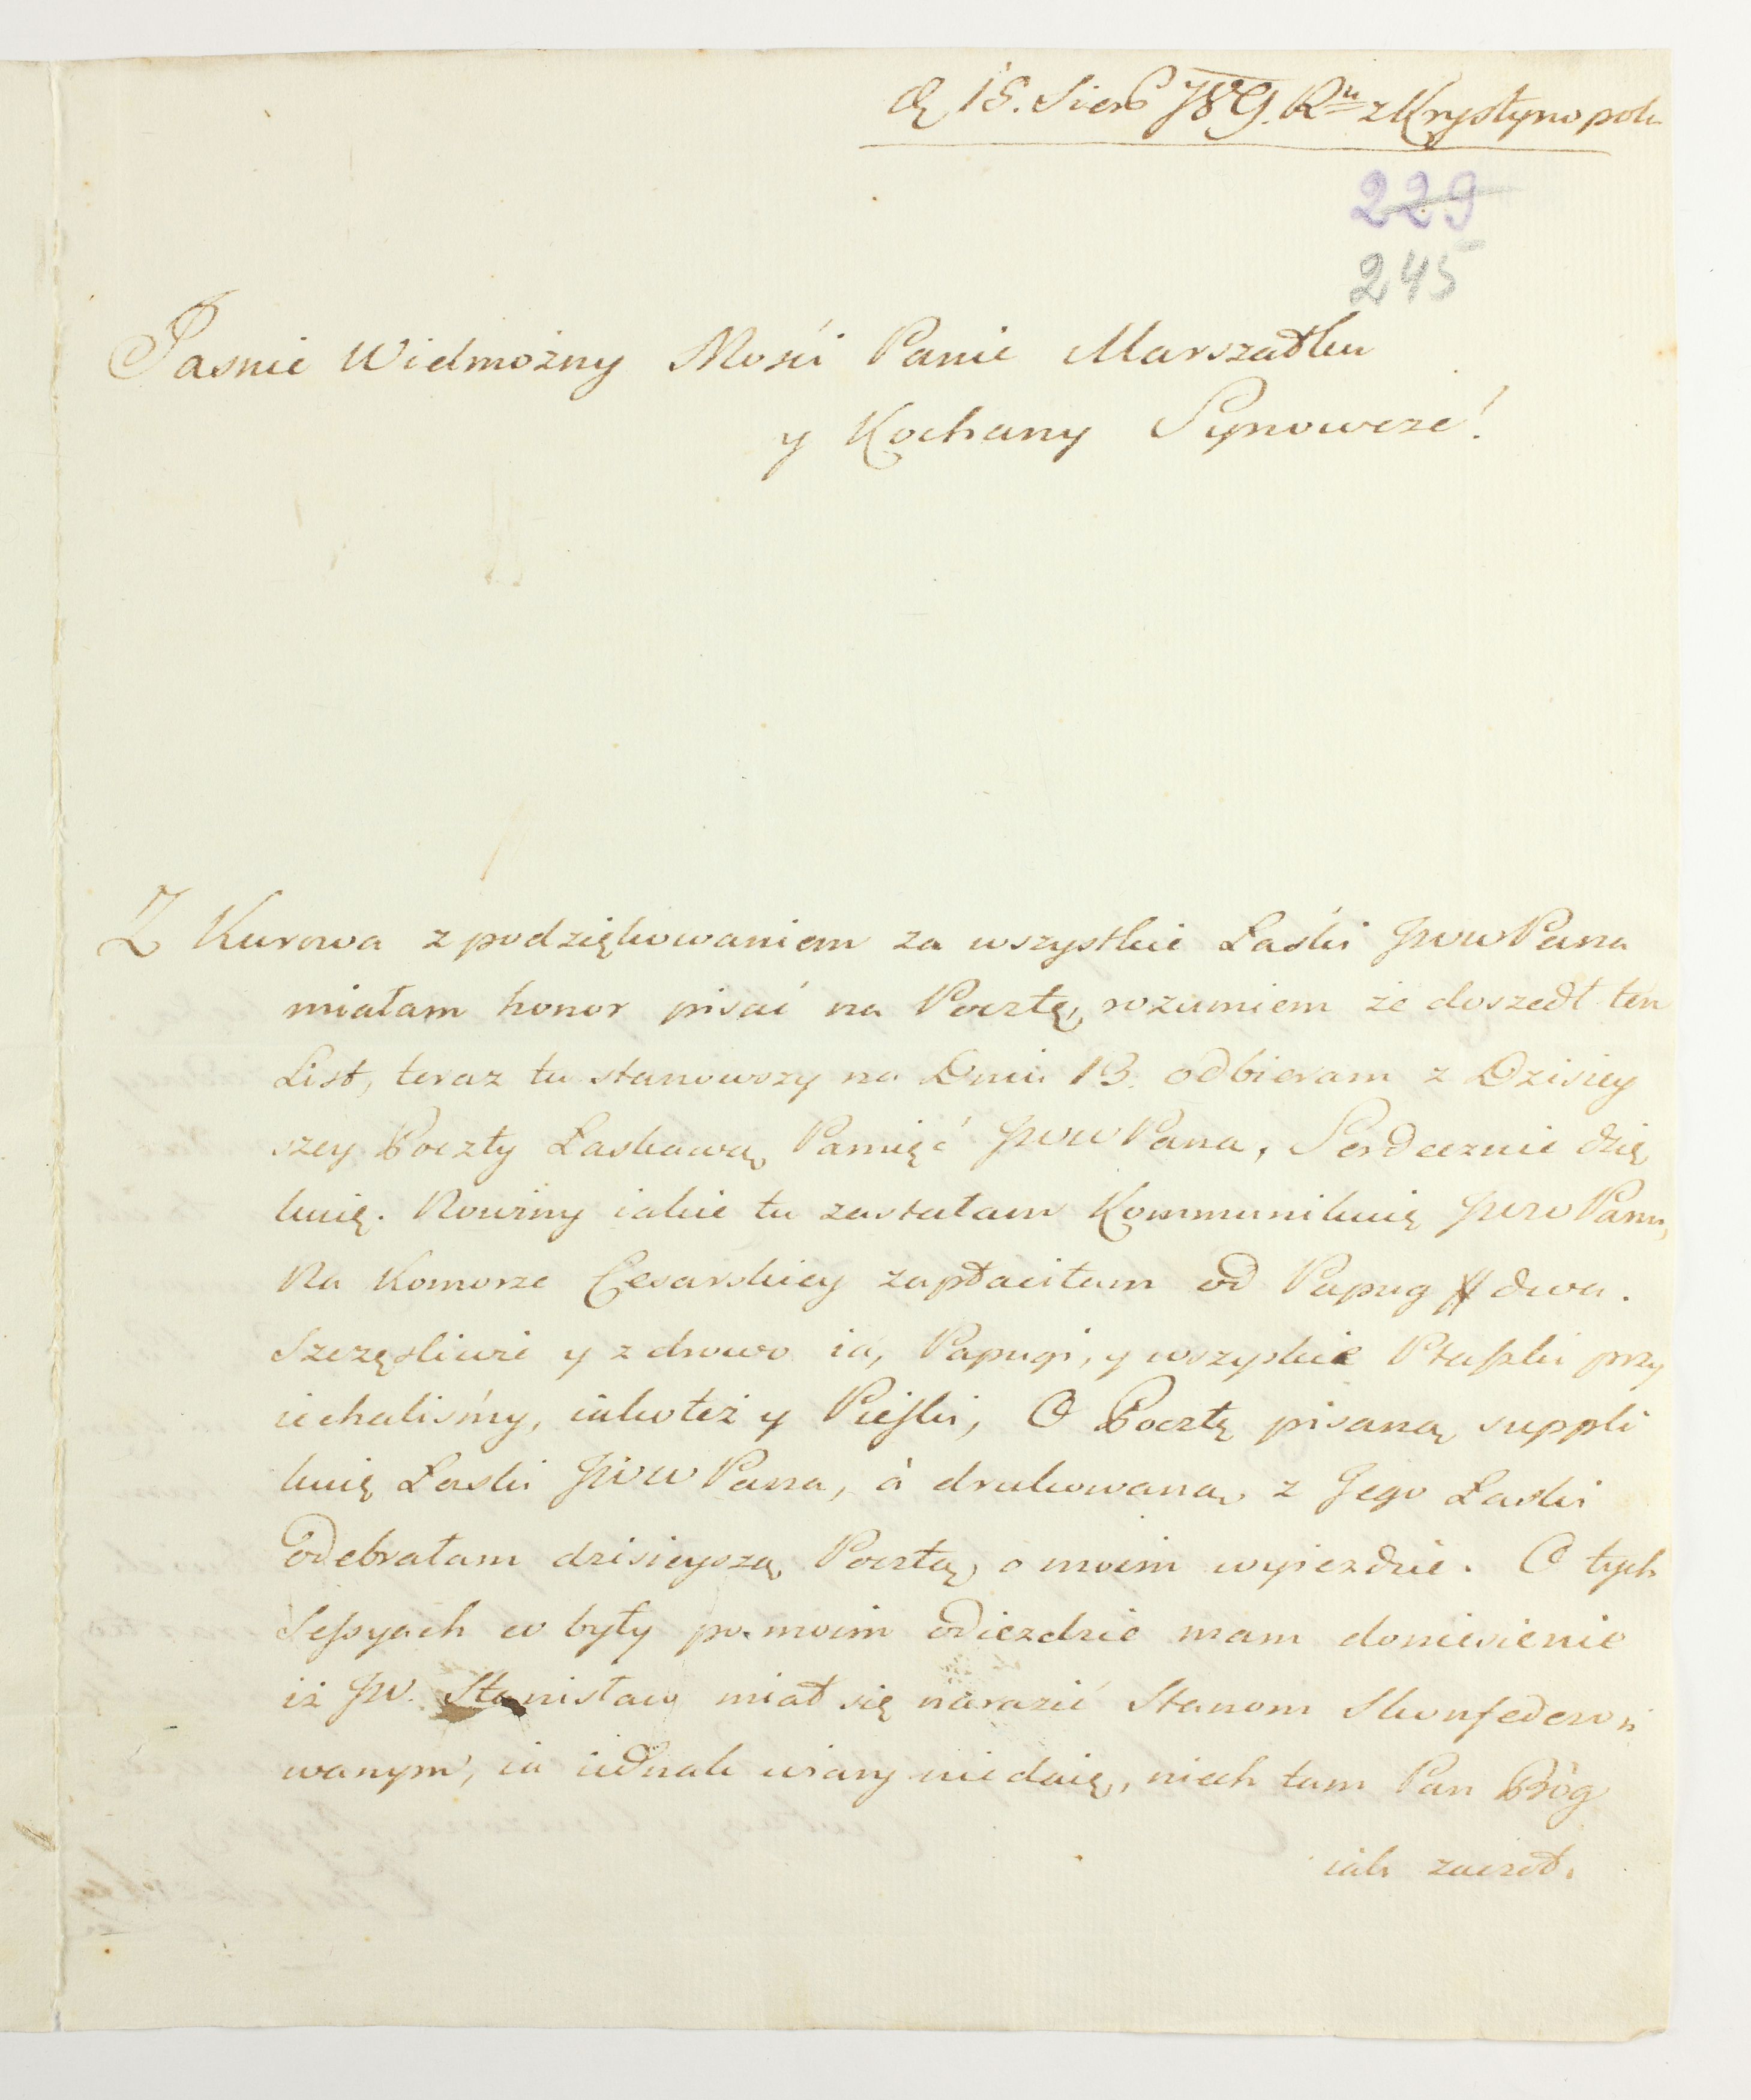 d. 15. Sierp 789. Ru z Krystynopola
229
245
Jasnie Wielmożny Mosci Panie Marszałku
y Kochany Synowcze!
Z Kurowa z podziękowaniem za wszystkie Łaski JWW Pana
miałam honor pisać na Pocztę, rozumiem że doszedł ten
List, teraz tu stanowszy na Dniu 13. odbieram z Dzisiey
szey Poczty Łaskawą Pamięć JWW Pana, Serdecznie dzię
kuię. Nowiny iakie tu zastałam Kommunikuię JWW Panu,
Na Komorze Cesarskiey zapłaciłam od Papug # dwa.
Szczęsliwie y zdrowo ia, Papugi, y wszyskie Ptaszki przy
iechalismy, iakoteż y Pieski, O Pocztę pisaną suppli
kuię Łaski JWW Pana, à drukowaną z Jego Łaski
Odebrałam dzisieyszą Pocztą o moim wyiezdzie. O tych
Sessyach co były po moim odiezdzie mam doniesienie
iż JW. Stanisław miał się narazić Stanom Skonfedero
wanym, ia iednak wiary nie daię, niech tam Pan Bóg
iak zwrot.